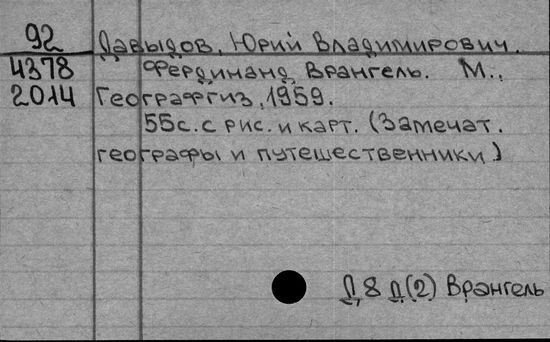 92 Давыдов, Юрий Владимирович.
4378 Фердинанд Врангель. М.,
2014 Географгиз, 1959.
55с. с рис. и карт. (Замечат.
географы и путешественники)
Д 8 д(2) Врангель